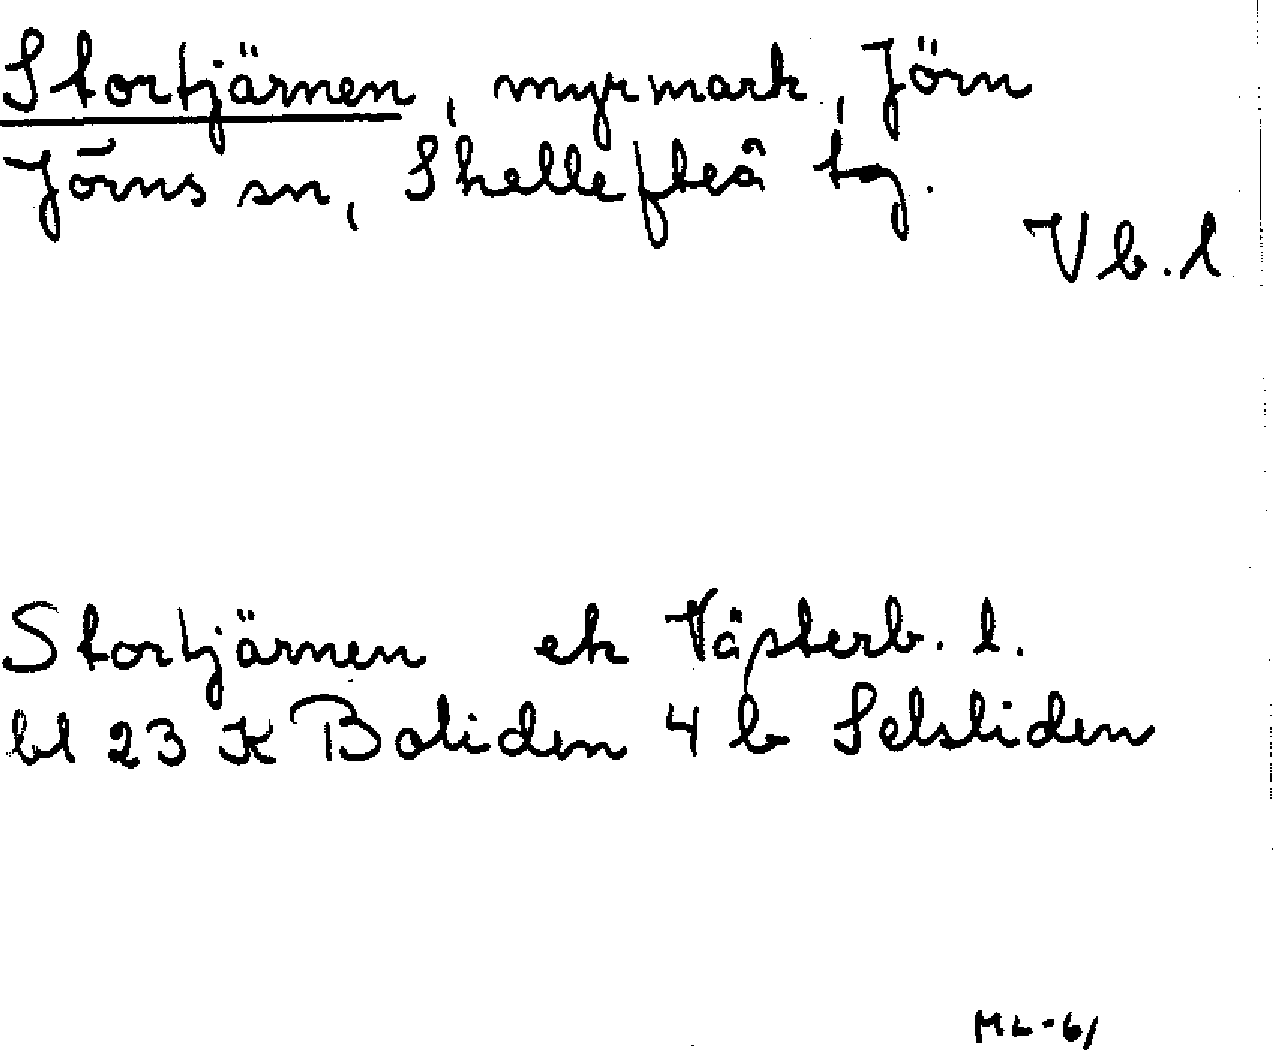 Stortjärnen, myrmark, Jörn
Jörns sn, Skellefteå tg.
Vb.l
Stortjärnen ek Västerb. l.
bl 23 K Boliden 4 b Selsliden
ML-61